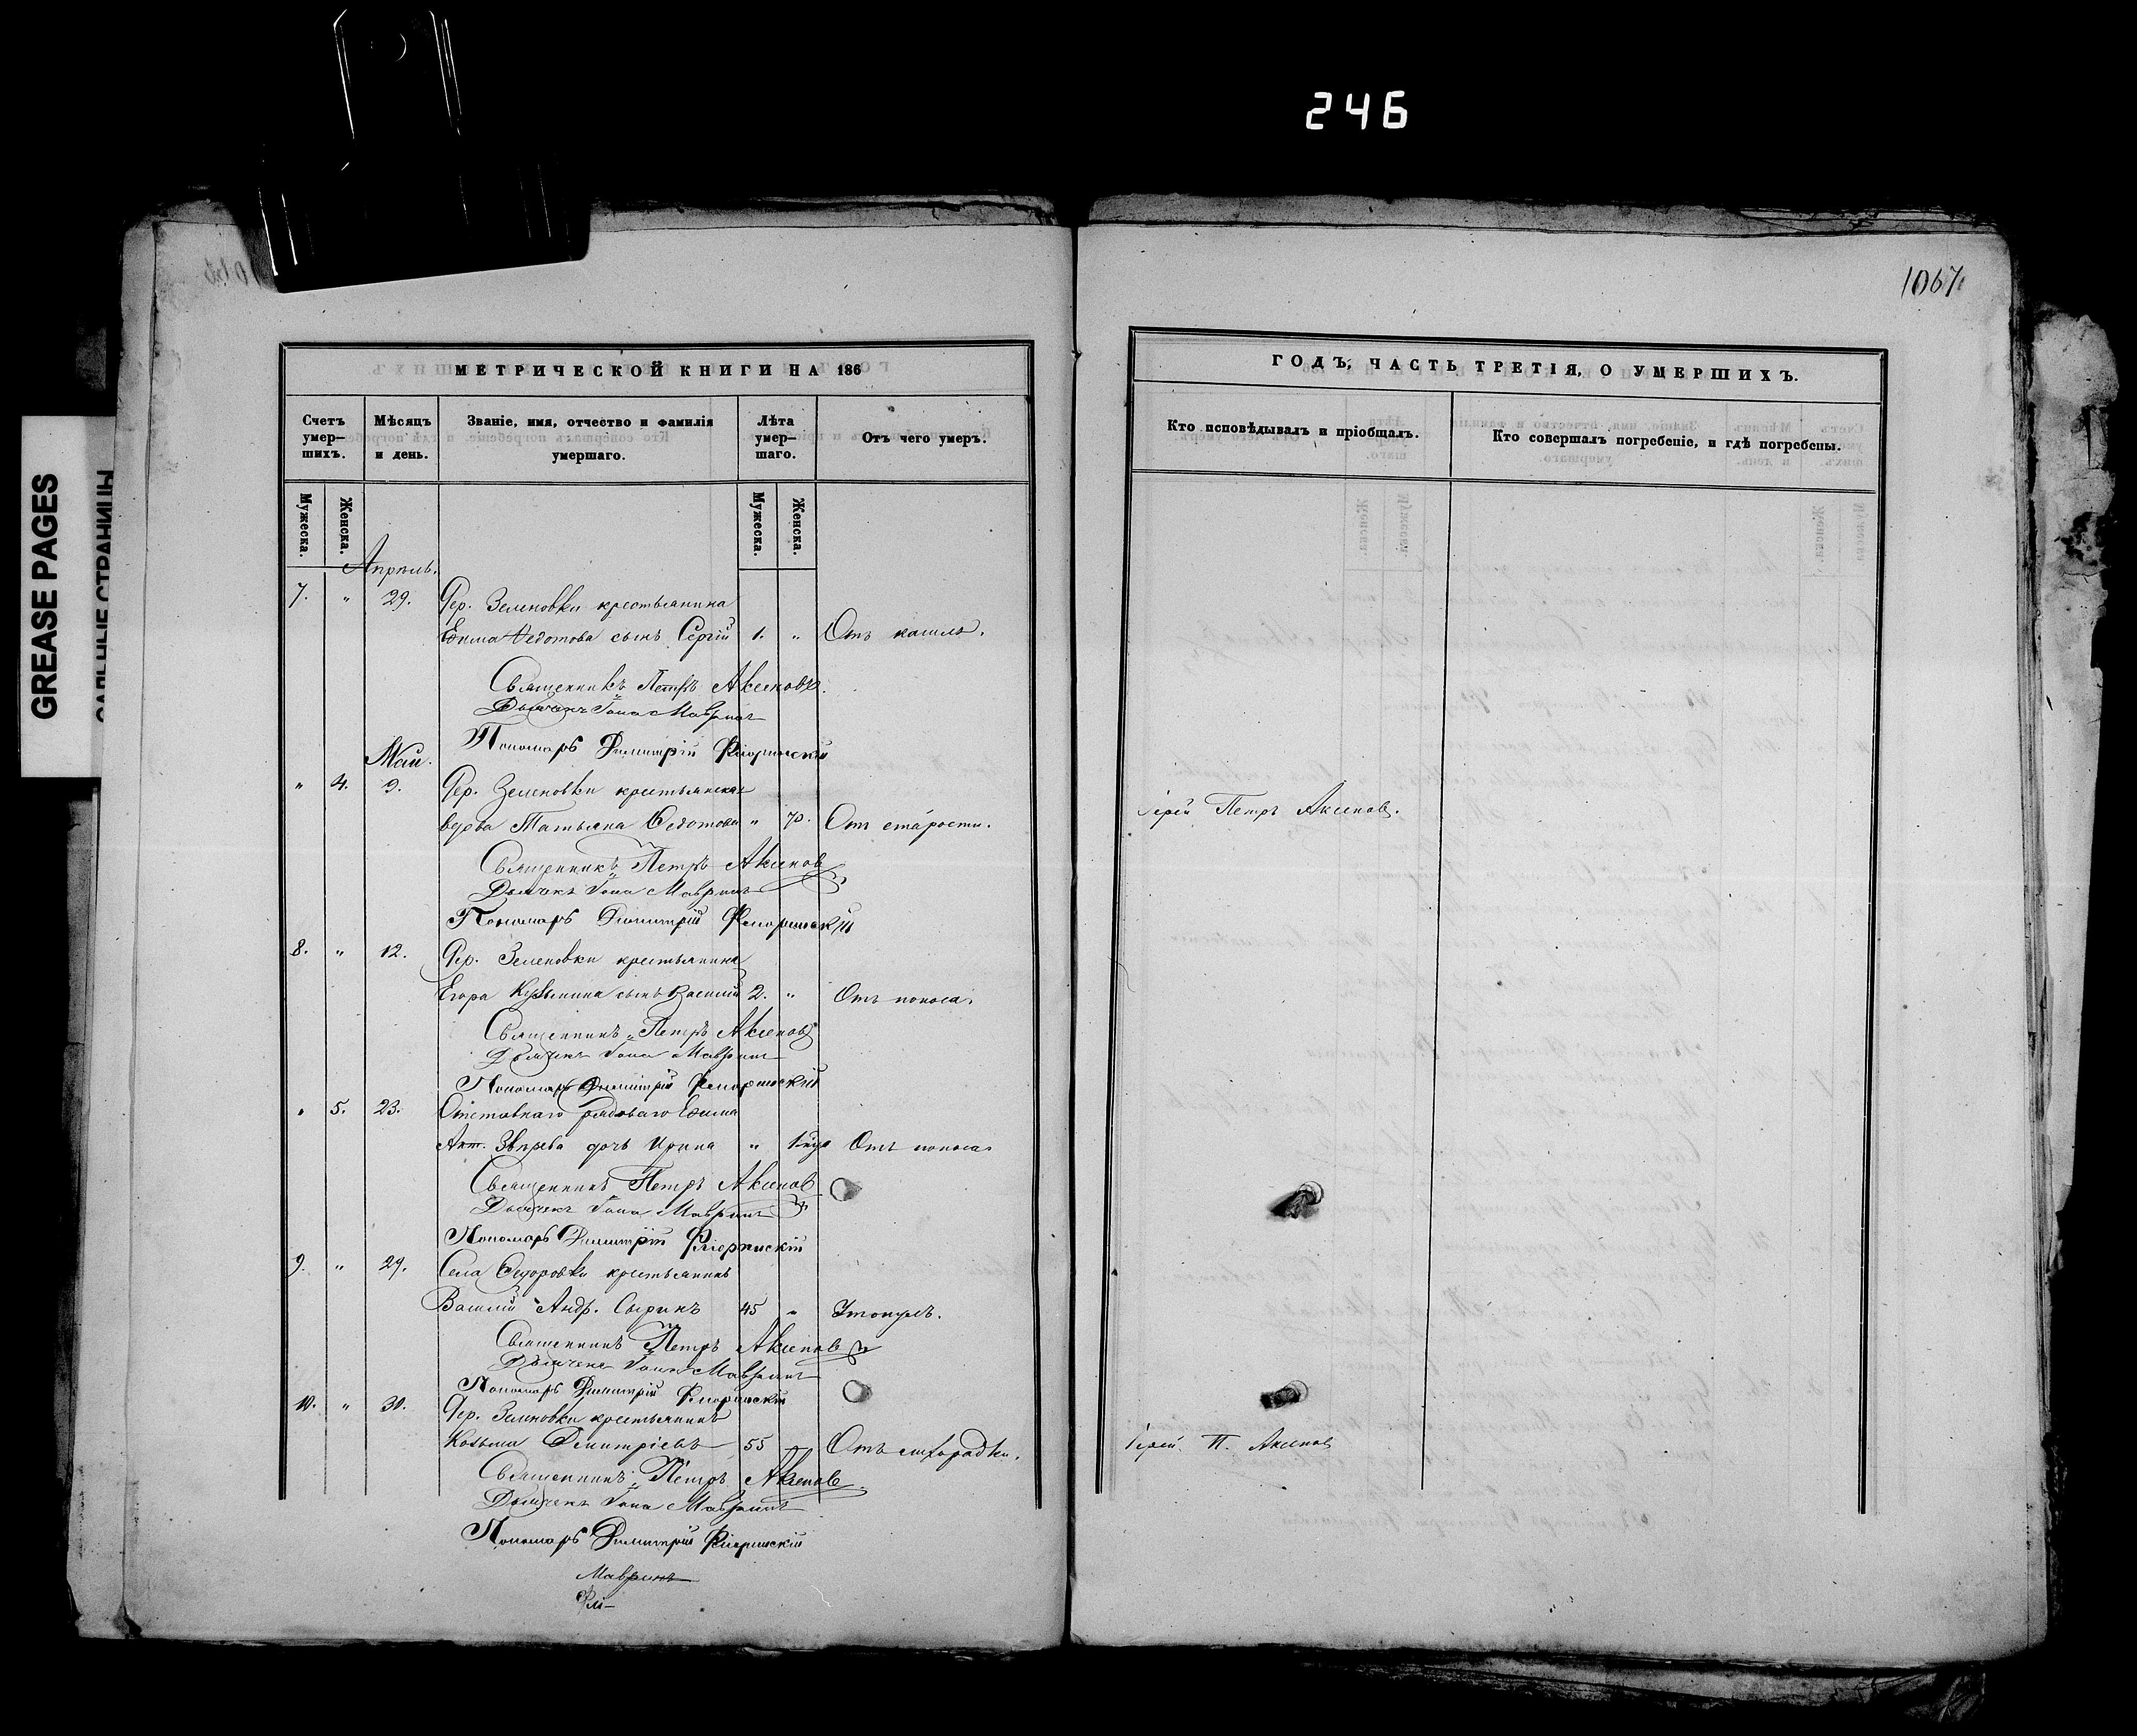 246
GREASE PAGES
САЛЬНЫЕ СТРАНИЦЫ
1067
МЕТРИЧЕСКОЙ КНИГИ НА 186
Счетъ умер-шихъ.
Мѣсяцъ и день.
Званіе, имя, отчество и фамилія умершаго.
Лѣта умер-шаго.
Отъ чего умеръ.
Мужеска.
Женска.
Мужеска.
Женска.
Апрѣль.
7. " 29. Дер. Зеленовки крестьянина
Ефима Ѳедотова сынъ Сергій 1. " Отъ кашля.
Священникъ Петръ Аксеновъ.
Дьячекъ Іона Мавринъ
Пономарь Димитрій Флоринскій
Май.
" 4. 9. Дер. Зеленовки крестьянская
вдова Татьяна Ѳедотова " 70. Отъ старости.
Священникъ Петръ Аксеновъ
Дьячекъ Іона Мавринъ
Пономарь Димитрій Флоринскій
8. " 12. Дер. Зеленовки крестьянина
Егора Кузьмина сынъ Василій 2. " Отъ поноса.
Священникъ Петръ Аксеновъ
Дьячекъ Іона Мавринъ
Пономарь Димитрій Флоринскій
" 5. 23. Отставнаго рядоваго Ефима
Ант. Звѣрева дочь Ирина " Отъ поноса
Священникъ Петръ Аксенов
Дьячекъ Іона Мавринъ
Пономарь Димитрій Флоринскій
9. " 29. Села Ѳедоровки крестьянинъ
Василій Андр. Сыринъ 45 " Утонулъ.
Священникъ Петръ Аксенов
Дьячекъ Іона Мавринъ
Пономарь Димитрій Флоринскій
10. " 30. Дер. Зеленовки крестьянинъ
Козьма Димитріевъ 55 Отъ лихорадки.
Священникъ Петръ Аксенов
Дьячекъ Іона Мавринъ
Пономарь Димитрій Флоринскій
Мавринъ
Фло-
ГОДЪ, ЧАСТЬ ТРЕТІЯ, О УМЕРШИХЪ.
Кто исповѣдывалъ и пріобщалъ.
Кто совершалъ погребеніе, и гдѣ погребены.
Іерей Петръ Аксенов.
Іерей П. Аксенов